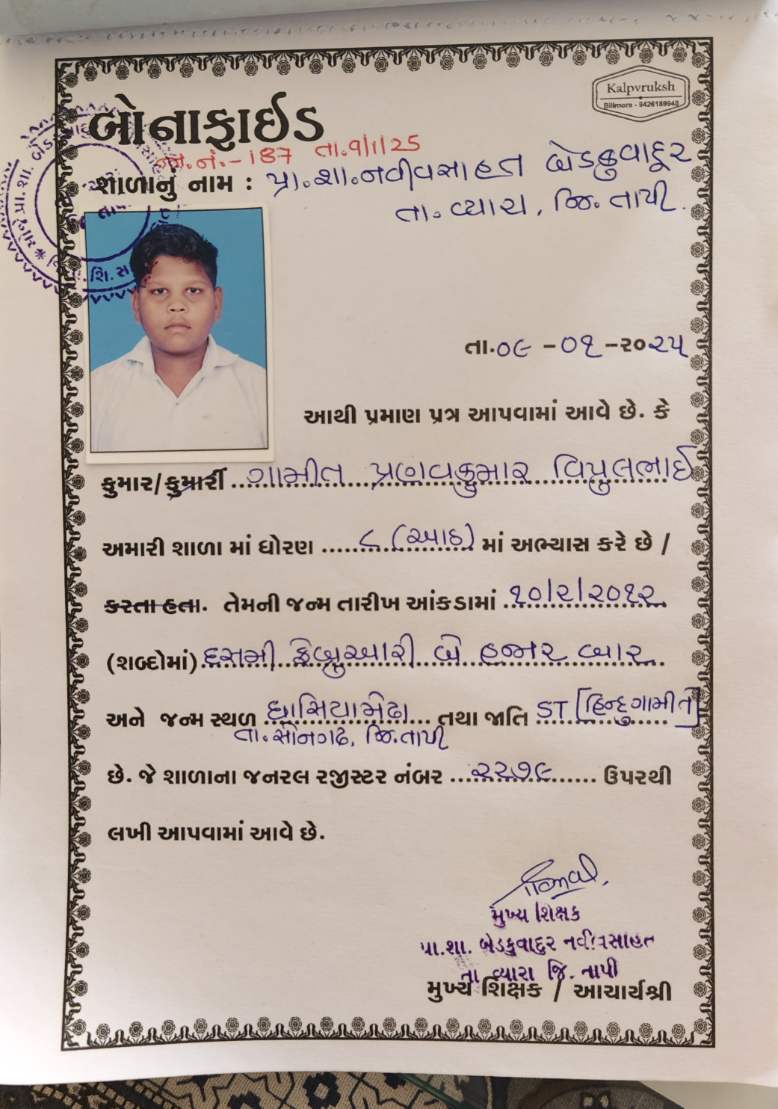 Kalpvruksh
Bilimora - 9426189948
બોનાફાઈડ
જા.નં.-187 તા.9/1/25
શાળાનું નામ : પ્રા.શા.નવીવસાહત બેડકુવાદૂર
તા. વ્યારા, જિ. તાપી.
તા.૦૯ -૦૧ -૨૦૨૫
આથી પ્રમાણ પત્ર આપવામાં આવે છે. કે
કુમાર/કુમારી ગામીત પ્રણવકુમાર વિપુલભાઈ
અમારી શાળા માં ધોરણ ......૮ (આઠ) માં અભ્યાસ કરે છે /
કરતા હતા. તેમની જન્મ તારીખ આંકડામાં ૧૦/૨/૨૦૧૨
(શબ્દોમાં) દસમી ફેબ્રુઆરી બે હજાર બાર
અને જન્મ સ્થળ ઘાસિયામેઢા તથા જાતિ ST [હિન્દુ ગામીત]
તા. સોનગઢ, જિ. તાપી
છે. જે શાળાના જનરલ રજીસ્ટર નંબર ...૨૨૭૯...... ઉપરથી
લખી આપવામાં આવે છે.
મુખ્ય શિક્ષક
પ્રા.શા. બેડકુવાદુર નવીવસાહત
તા વ્યારા જિ. તાપી
મુખ્ય શિક્ષક / આચાર્યશ્રી